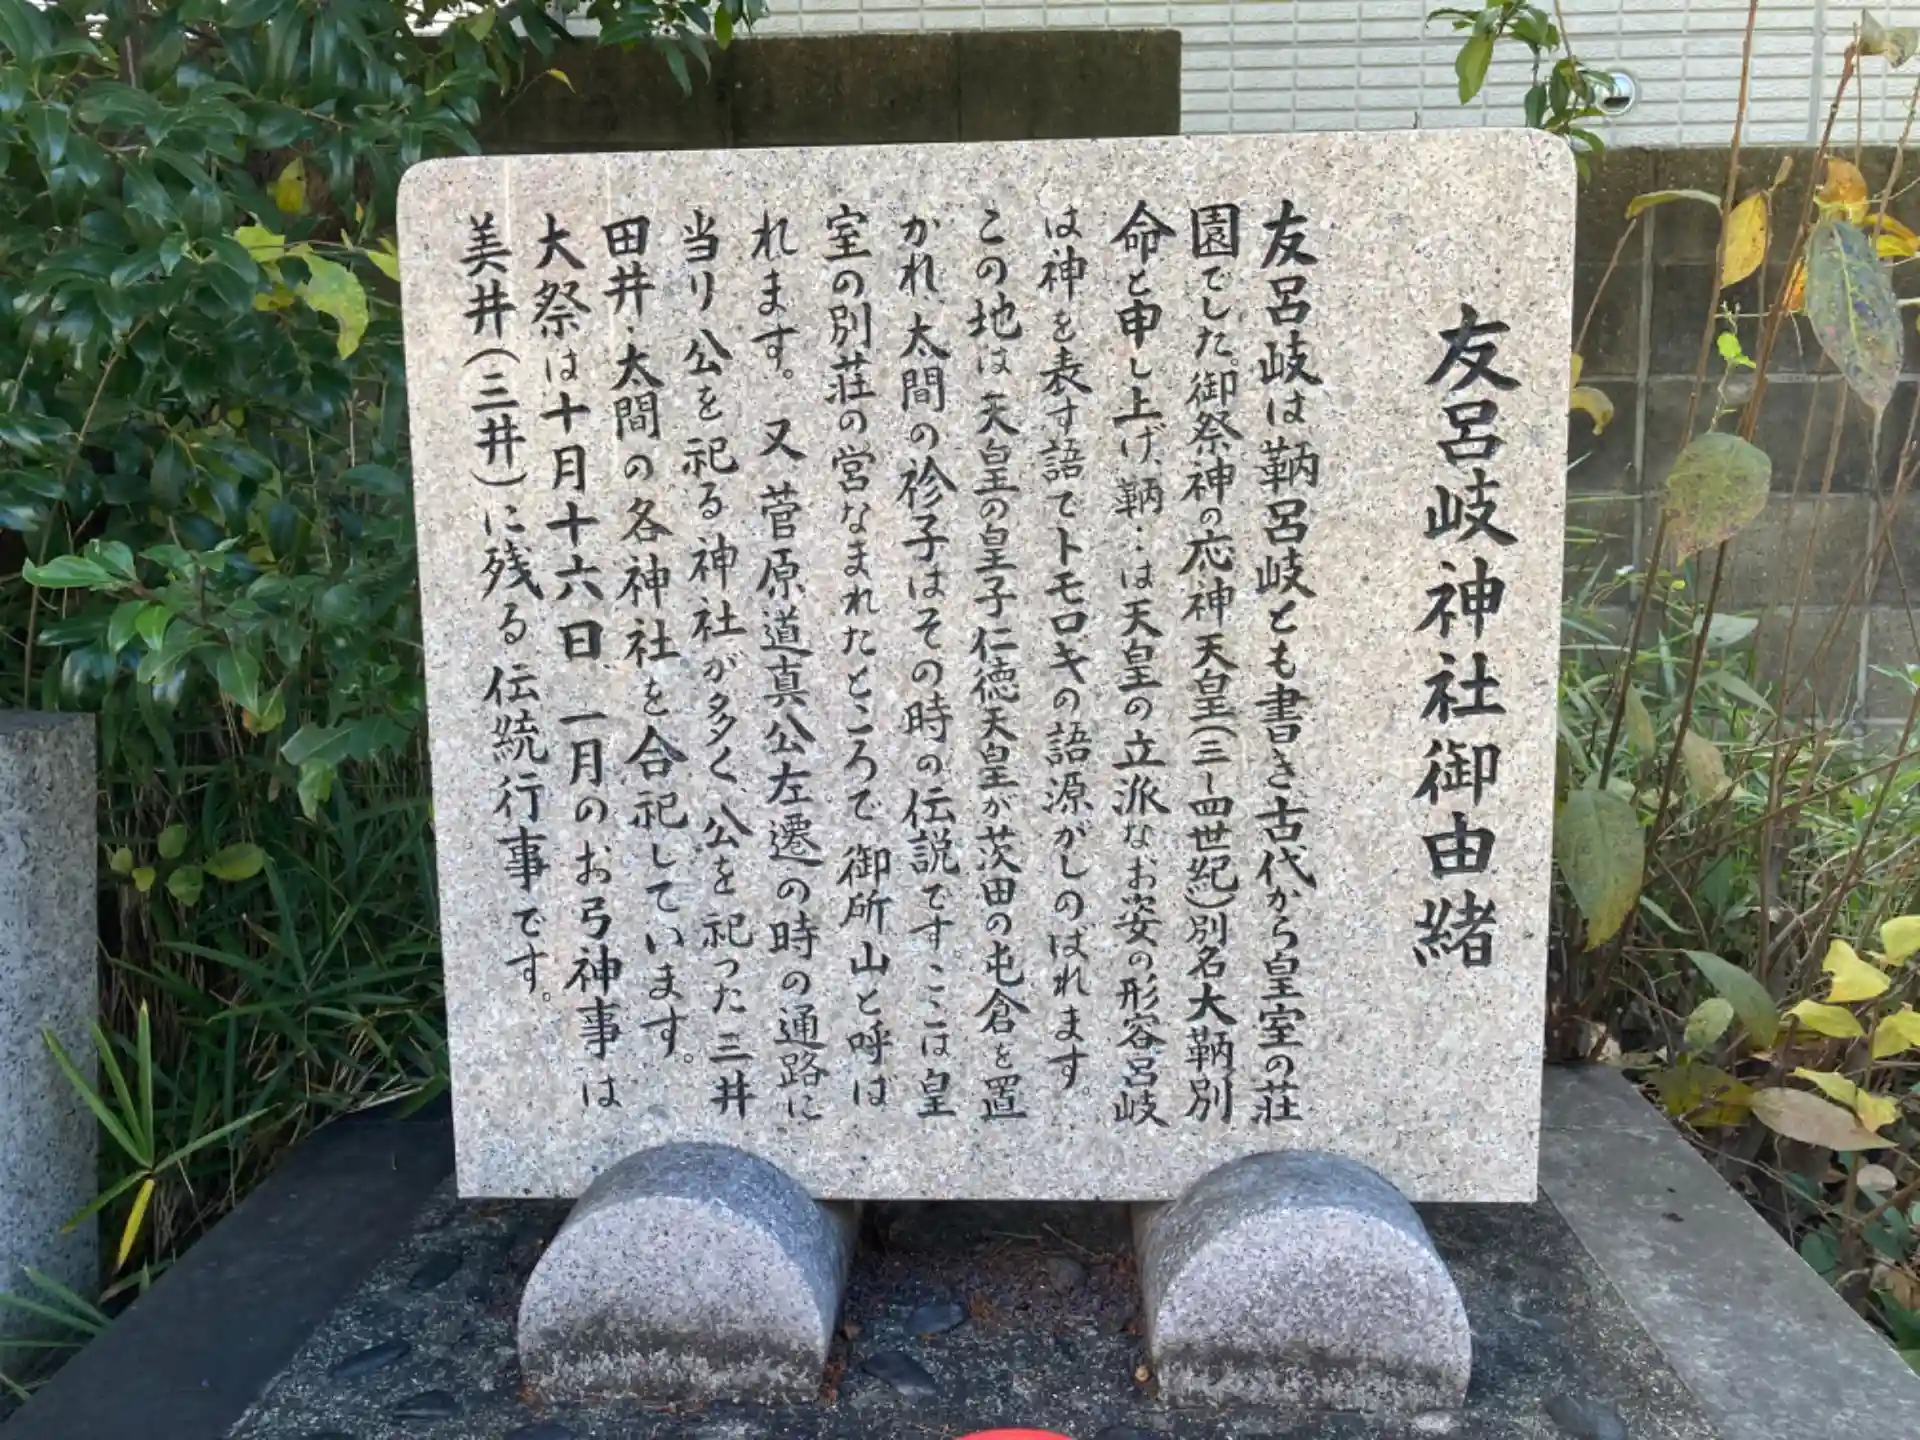 友呂岐神社御由緒
友呂岐は鞆呂岐とも書き古代から皇室の荘
園でした。御祭神の応神天皇(三〜四世紀)別名大鞆別
命と申し上げ、鞆‥は天皇の立派なお姿の形容呂岐
は神を表す語でトモロキの語源がしのばれます。
この地は天皇の皇子仁徳天皇が茨田の屯倉を置
かれ、太間の袗子はその時の伝説です。ここは皇
室の別荘の営なまれたところで御所山と呼ば
れます。又菅原道真公左遷の時の通路に
当り公を祀る神社が多く、公を祀った三井
田井・太間の各神社を合祀しています。
大祭は十月十六日 一月のお弓神事は
美井(三井)に残る伝統行事です。